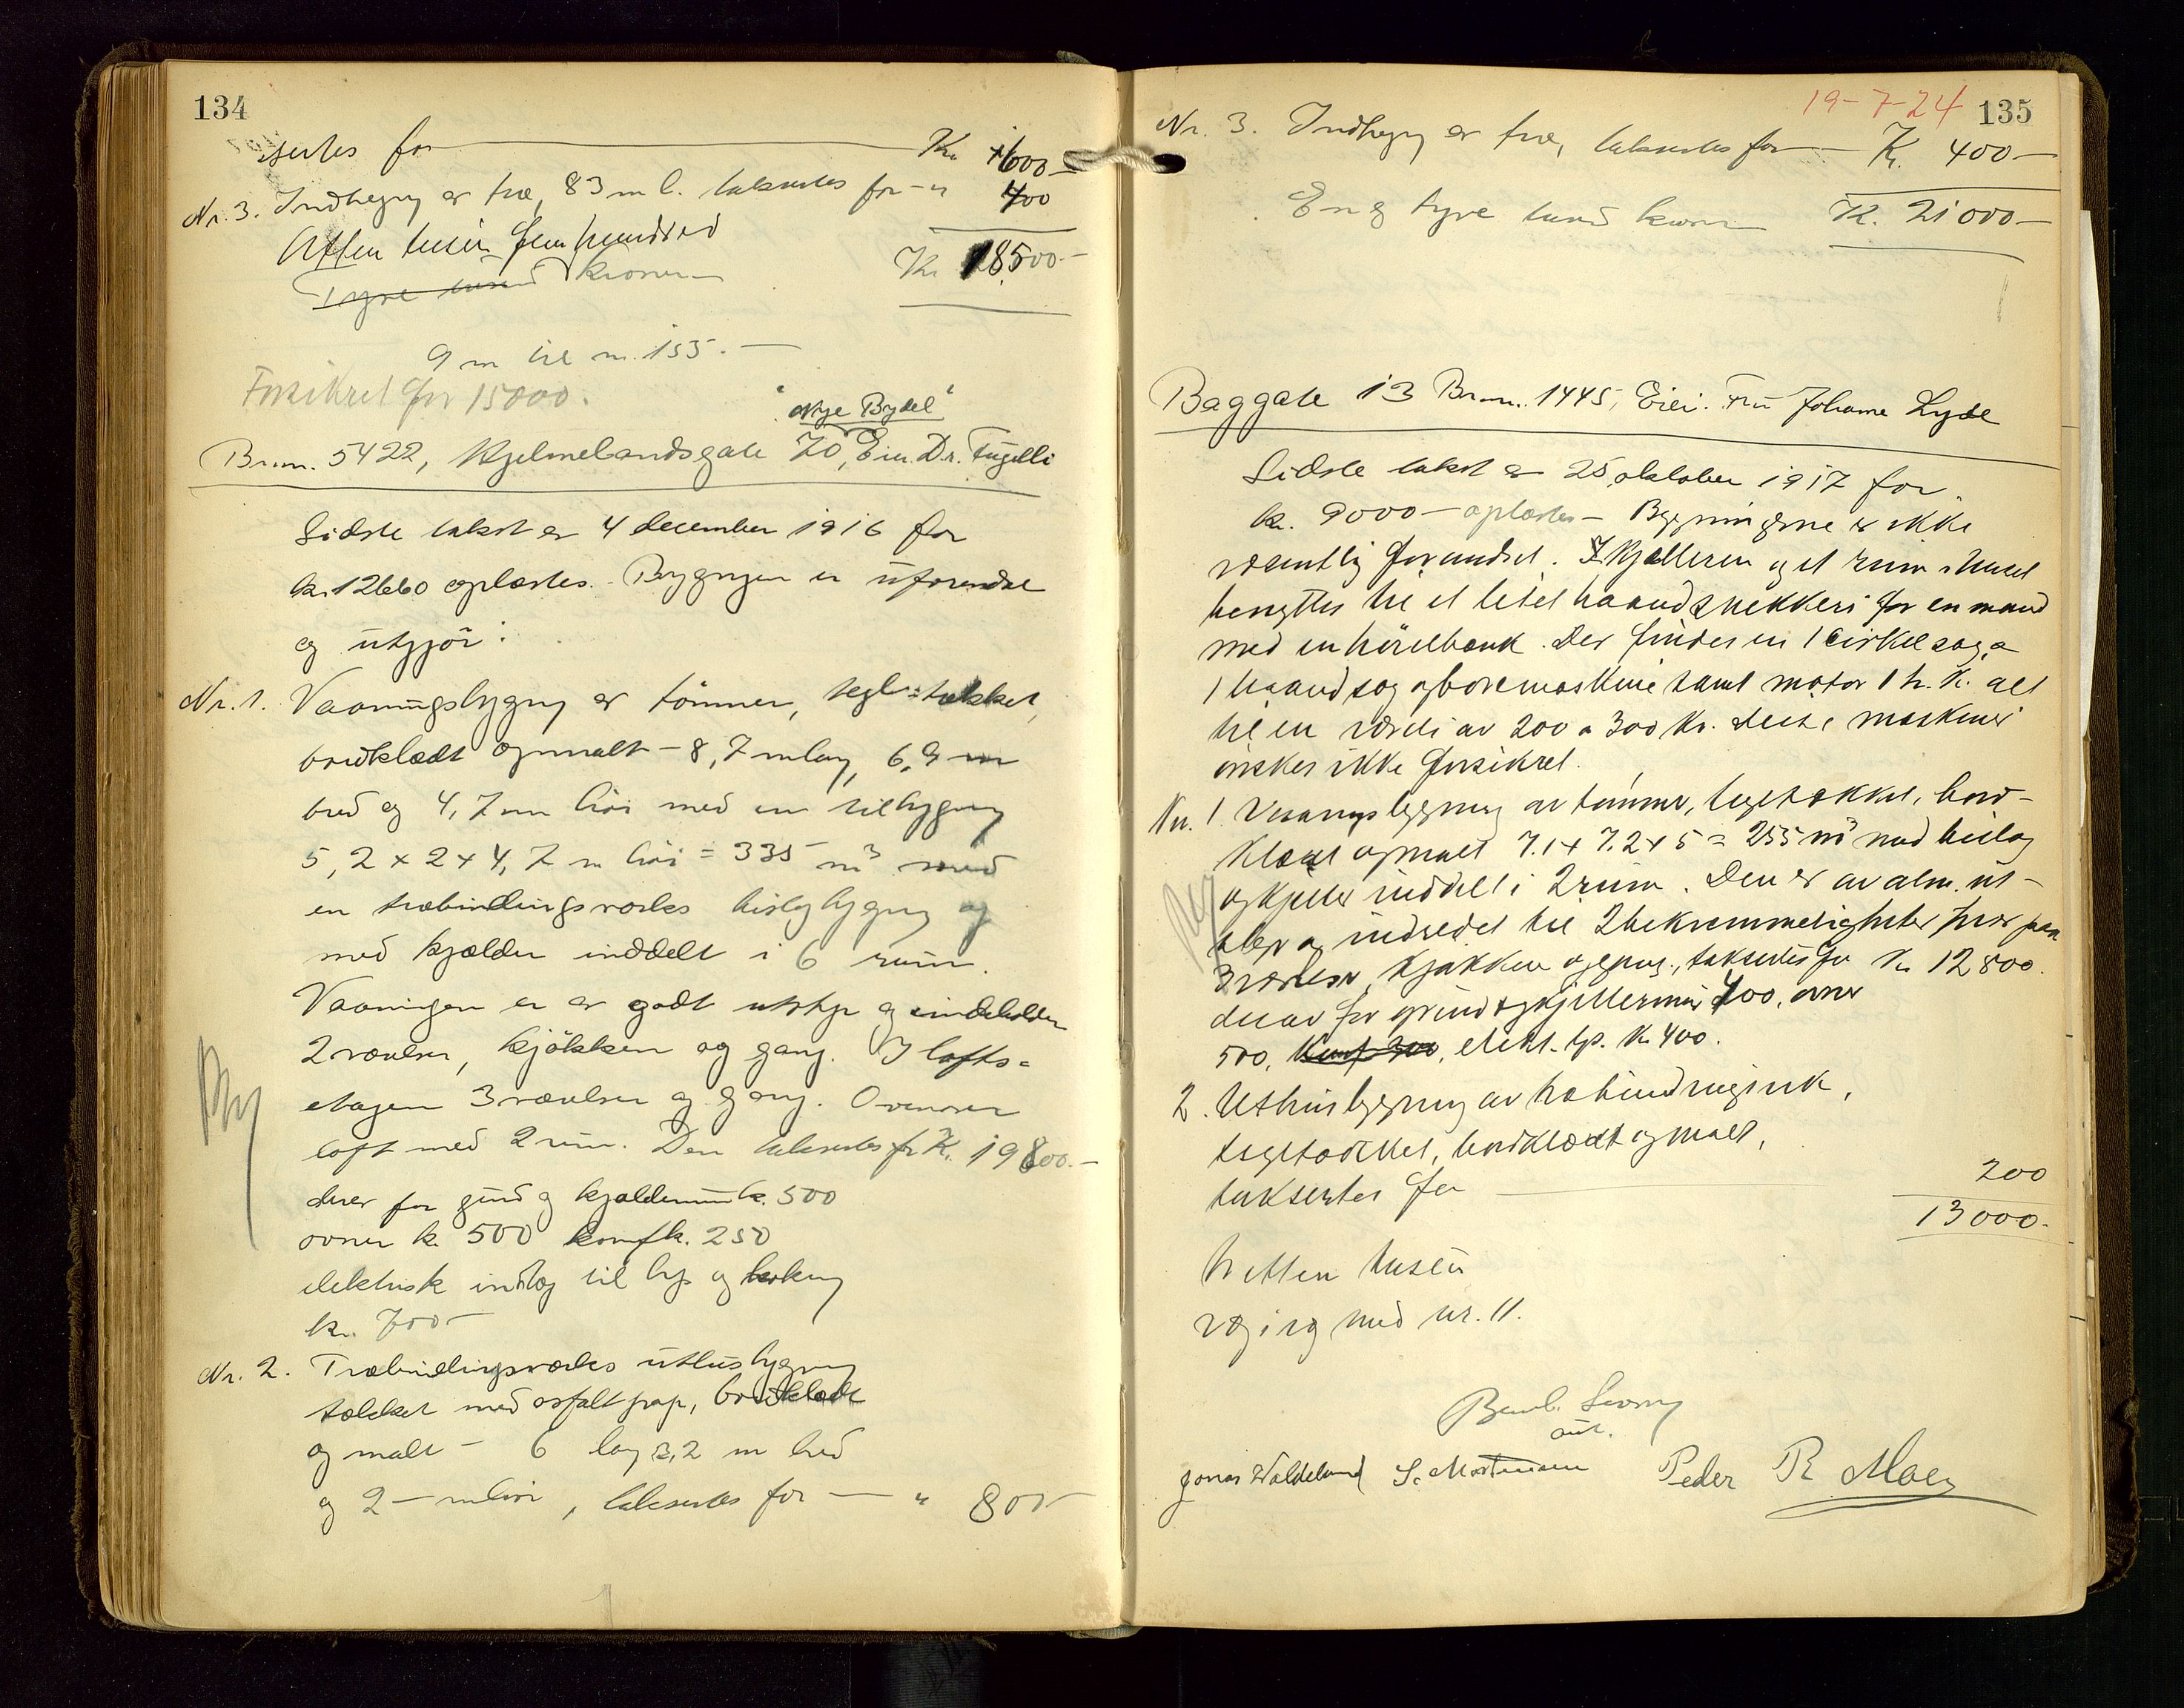 134
sertes for Kr. 1600-
Nr. 3. Indhegng av træ, 83 m l. takseres for - " 400
Atten tusin femhundred
Tyve tusind kroner Kr 18500.-
9 m til nr. 155.-
Forsikret for 15000.
"Nye Bydel"
Brnr. 5422, Hjelmelandsgate 70, Eier Dr. Fugelli
Sidste takst av 4 december 1916 for
kr. 12660 oplæstes. Bygngen er uforandret
og utgjør:
Nr. 1. Vaaningsbygng av tømmer, teglstækket,
bordklædt og malt - 8,7 m lang, 6,9 m
bred og 4,7 m høi med en tilbygng
5,2 x 2 x 4,7 m høi = 335 m³ med
en træbindingsverks bislagbygng og
med kjælder inddelt i 6 rum.
Vaaningen er av godt utstyr og indeholder
2 værelser, kjøkken og gang. I lofts-
etagen 3 værelser og gang. Ovenover
loft med 2 rum. Den takseres for Kr. 19800.-
derav for grund og kjældermur k. 500
ovner k. 500 komf k. 250
elektrisk indlæg til lys og kokng
kr. 700-
Nr. 2. Træbindingsverks uthusbygng
tækket med asfaltpap, bordklædt
og malt - 6 lang 3,2 m bred
og 2 - m høi, takseres for - " 800-
19-7-24 135
Nr. 3. Indhegng av træ, takseres for - Kr. 400-
En og tyve tusind kroner Kr. 21000-
Baggate 13 Brnr. 1445, Eier: Fru Johanne Lyse
Sidste takst av 25 oktober 1917 for
kr. 9000- oplæstes - Bygningerne er ikke
væsentlig forandret. I kjælleren og et rum i huset
benyttes til et litet haandsnekkeri for en mand
med en høvelbænk. Der findes en 1 cirkelsag, a
1 haandsag og boremaskine samt motor 1 h.k. alt
til en værdi av 200 a 300 Kr. disse maskiner
ønskes ikke forsikret.
Nr. 1 Vaaningsbygning av tømmer, tegltækket, bord-
klædt og malt 7.1 x 7.2 x 5 = 255 m³ med bislag
og kjeller inddelt i 2 rum. Den er av alm. ut-
styr og indredet til 2 bekvemmeligheter hver paa
3 værelser, kjøkken og gang, takseres for Kr 12800.
derav for grund og kjellermur 400, ovner
500, komf 300, elekt. lys. Kr 400.
2. Uthusbygning av træbindingsverk,
tegltækket, bordklædt og malt,
takseres for 200
13000.
Tretten tusen
væg i væg med nr. 11.
Jonas Waldeland S. Mortensen Peder R. Moen